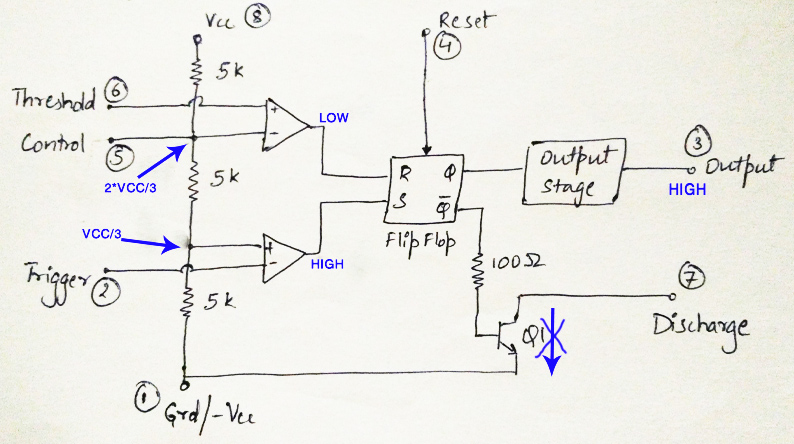 Vcc 8
Reset
4
5k
Threshold 6
+
-
LOW
Control
5
2*VCC/3
5k
R Q
S Q̅
Flip Flop
Output
Stage
3
Output
HIGH
VCC/3
+
-
HIGH
Trigger 2
100Ω
5k
7
Discharge
Q1
1 Grd/-Vcc